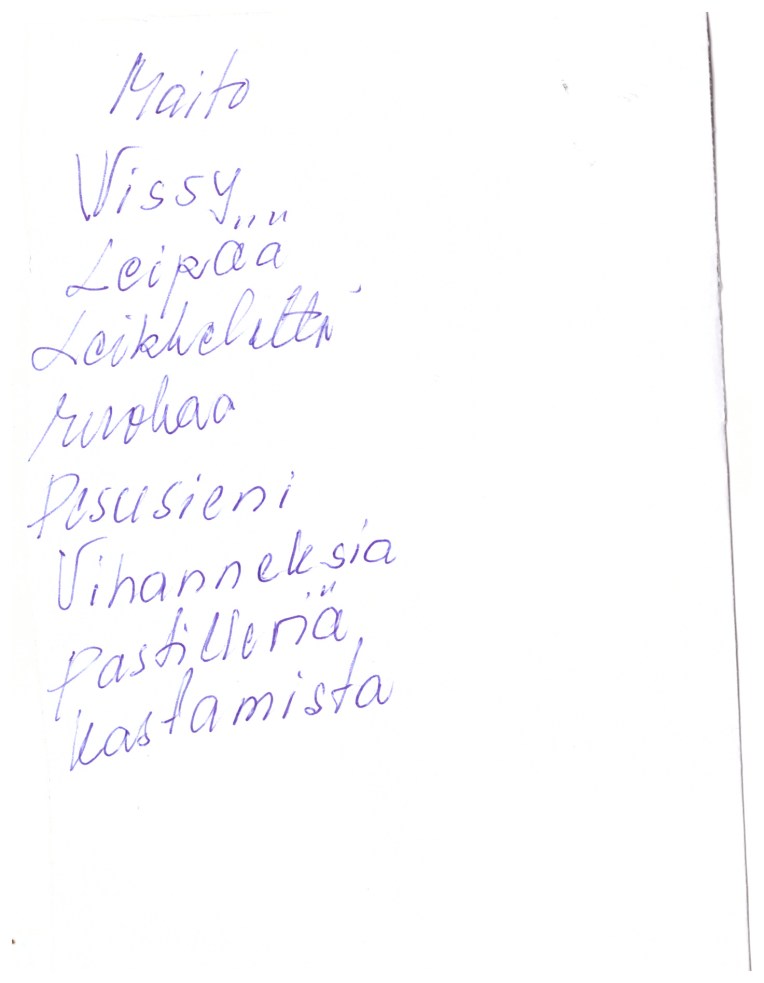 Maito
Vissy
Leipää
Leikkelettä
ruohaa
Pesusieni
Vihanneksia
Pastilleriä
kastamista